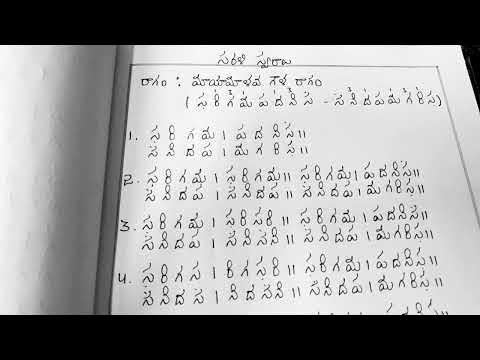 సరళి స్వరాలు
రాగం : మాయామాళవ గౌళ రాగం
( స రి గ మ ప ద ని స - స ని ద ప మ గ రి స )
1. స రి గ మ । ప ద ని స ॥
స ని ద ప । మ గ రి స ॥
2. స రి గ మ । స రి గ మ ॥ స రి గ మ । ప ద ని స ॥
స ని ద ప । స ని ద ప ॥ స ని ద ప । మ గ రి స ॥
3. స రి గ మ । స రి స రి ॥ స రి గ మ । ప ద ని స ॥
స ని ద ప । స ని స ని ॥ స ని ద ప । మ గ రి స ॥
4. స రి గ స । రి గ స రి ॥ స రి గ మ । ప ద ని స ॥
స ని ద స । ని ద స ని ॥ స ని ద ప । మ గ రి స ॥